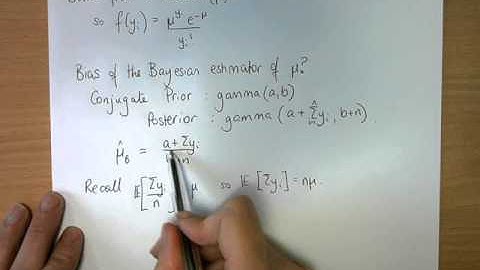 so f(yᵢ) = μ^yᵢ e^-μ / yᵢ!
Bias of the Bayesian estimator of μ?
Conjugate Prior : gamma(a,b)
Posterior : gamma(a + Σyᵢ, b+n)
μ̂_B = a + Σyᵢ / n
Recall 𝔼[Σyᵢ / n] μ so 𝔼[Σyᵢ] = nμ.